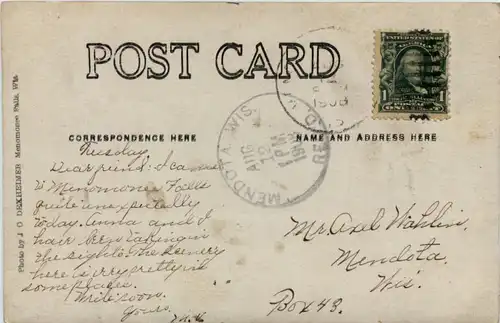 POST CARD
UNITED STATES OF AMERICA
1
1908
REC'D
MENDOTA, WIS.
AUG
12
1PM
CORRESPONDENCE HERE
NAME AND ADDRESS HERE
Photo by J O DEXHEIMER Menomonee Falls, Wis.
Tuesday
Dear friend: I came
to Menomonee Falls
quite unexpectally
today. Anna and I
hair been taking in
the sights. The scenery
here is very pretty in
some places.
Write soon.
Yours,
Mr. Axel Wahlin,
Mendota,
Wis.
Box 48.